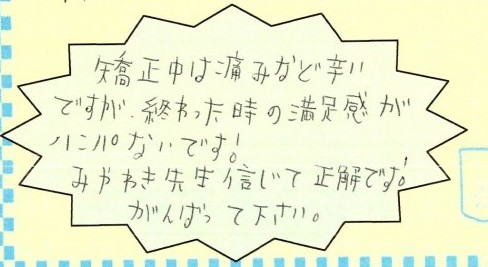 矯正中は痛みなど辛い
ですが、終わった時の満足感が
ハンパないです!
みやわき先生信じて正解です!
がんばって下さい。